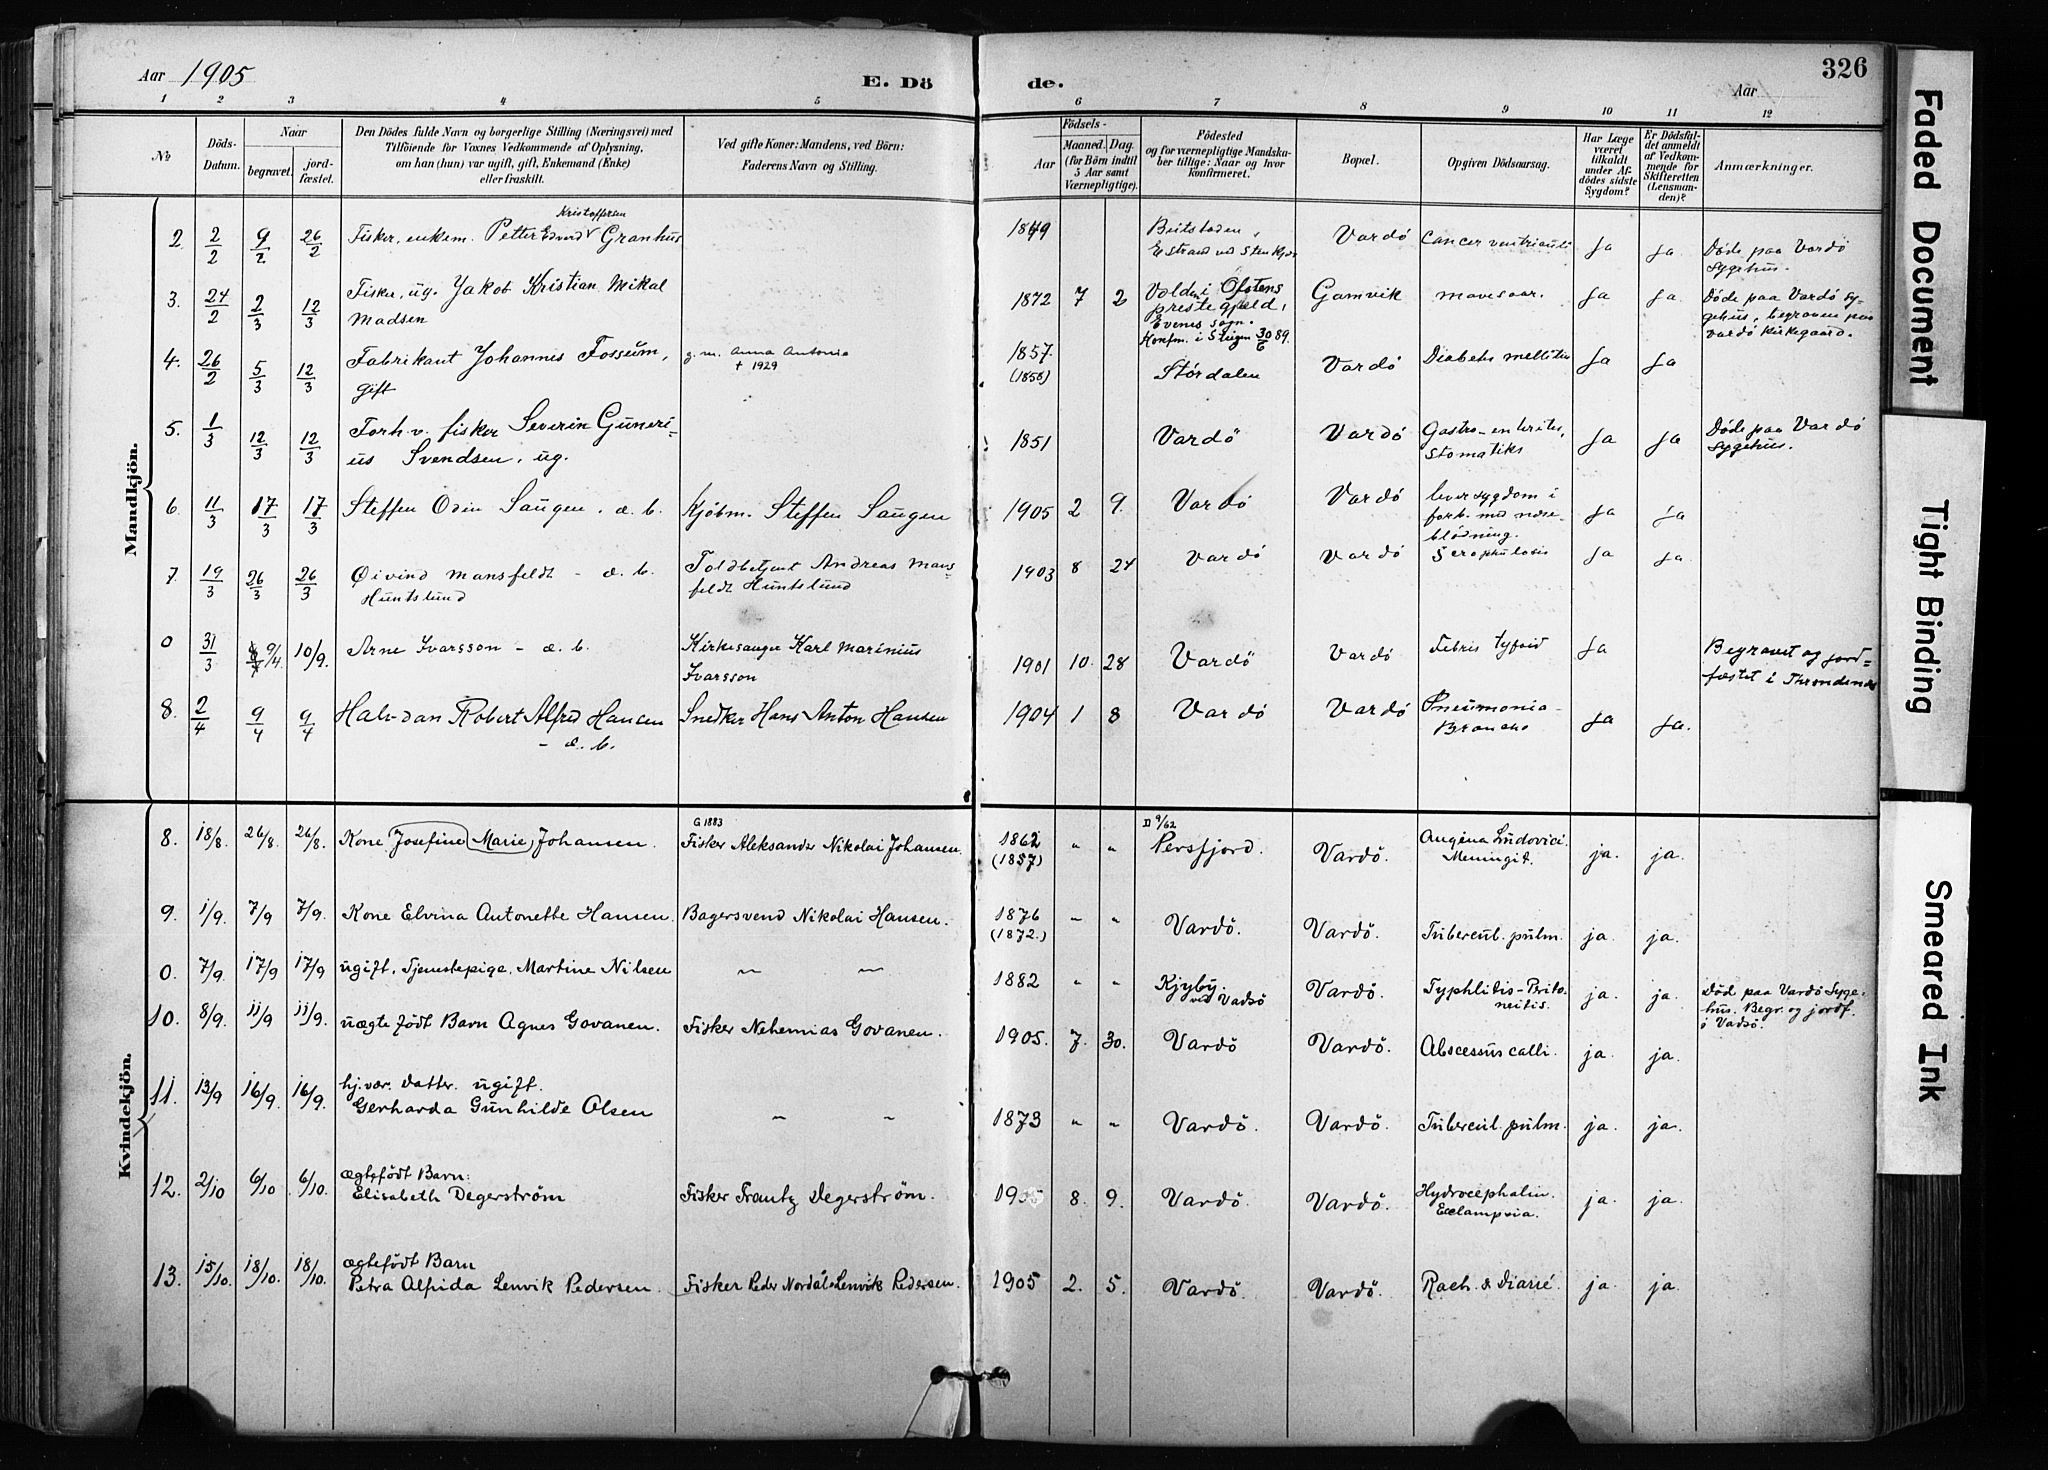 Aar 1905
E. Dö
de.
Aar
326
1 2 3 4 5 6 7 8 9 10 11 12
No
Döds-Datum.
Naar
begravet.
jord-fæstet.
Den Dödes fulde Navn og borgerlige Stilling (Næringsvei) med
Tilföiende for Voxnes Vedkommende af Oplysning,
om han (hun) var ugift, gift, Enkemand (Enke)
eller fraskilt.
Ved gifte Koner: Mandens, ved Börn:
Faderens Navn og Stilling.
Födsels-
Aar
Maaned. Dag.
(for Börn indtil
5 Aar samt
Værnepligtige).
Födested
og for værnepligtige Mandska-
ber tillige: Naar og hvor
konfirmeret.
Bopæl.
Opgiven Dödsaarsag.
Har Læge
været
tilkaldt
under Af-
dödes sidste
Sygdom?
Er Dödsfal-
det anmeldt
af Vedkom-
mende for
Skifteretten
(Lensman-
den)?
Anmærkninger.
Mandkjön.
2. 2/2 9/2 26/2 Fisker, enkem. Petter Edvard Kristoffersen Granhus 1849 Beitstaden, Vardö Cancer ventriculi Ja Ja. Döde paa Vardö
Sygehus.
3. 24/2 2/3 12/3 Fisker, ug. Jakob Kristian Mikal
Madsen 1872 7 2 Volden i Ofotens
prestegjæld,
Evenes sogn.
Konfm. i Steigen 30/6 89. Gamvik mavesaar. Ja Ja. Döde paa Vardö Sy-
gehus, begraven paa
Vardö Kirkegaard.
4. 26/2 5/3 12/3 Fabrikant Johannes Fossum,
gift g. m. Anna Antonia
† 1929 1857.
(1858) Stördalen Vardö Diabetes mellitus Ja Ja
5. 1/3 12/3 12/3 Forh.v. fisker Severin Guneri-
us Svendsen, ug. 1851 Vardö Vardö Gastro-enterites,
Stomatiks Ja Ja Döde paa Vardö
Sygehus.
6. 11/3 17/3 17/3 Steffen Odin Saugen. æ. b. Kjöbm. Steffen Saugen 1905 2 9. Vardö Vardö leversygdom i
forb. med næse-
blödning. Ja ja
7. 19/3 26/3 26/3 Øivind Mansfeldt - æ. b.
Huntslund Toldbetjent Andreas Mans-
feldt Huntslund 1903 8 24 Vardö Vardö Scrophulosis Ja Ja.
0 31/3 9/4 10/9. Arne Ivarsson - æ. b. Kirkesanger Karl Marinius
Ivarsson 1901 10. 28 Vardö Vardö Febris tyfoid Ja Begravet og jord-
fæstet i Throndenes
8. 2/4 9/4 9/4 Halvdan Robert Alfred Hansen
- æ. b. Snedker Hans Anton Hansen 1904 1 8 Vardö Vardö Pneumonia-
Broncho Ja Ja.
Kvindekjön.
8. 18/8. 26/8. 26/8. Kone Josefine (Marie) Johansen. G 1883
Fisker Aleksander Nikolai Johansen. 1862
(1857) " " D 9/62
Persfjord. Vardö. Angina Ludovici.
Meningit. ja. ja.
9. 1/9. 7/9 7/9. Kone Elvina Antonette Hansen. Bagersvend Nikolai Hansen. 1876
(1872.) " " Vardö. Vardö. Tubercul. pulm. ja. ja.
0. 7/9. 17/9 17/9 ugift. Tjenestepige. Martine Nilsen ~ ~ 1882 " " Kjyby.
ved Vadsö Vardö. Typhlitis-Perito-
neitis. ja. ja. Död paa Vardö Syge-
hus. Begr. og jordf.
i Vadsö.
10. 8/9. 11/9 11/9. uægte født Barn Agnes Govanen. Fisker Nehemias Govanen. 1905. 7. 30. Vardö Vardö. Abscessus calli. ja. ja.
11. 13/9 16/9. 16/9. hj.vær. Datter. ugift.
Gerharda Gunhilde Olsen ~ ~ 1873 " " Vardö. Vardö. Tubercul. pulm. ja. ja.
12. 2/10 6/10 6/10. ægtefödt Barn:
Elisabeth Degerström Fisker Frantz Degerström. 1905 8. 9. Vardö. Vardö. Hydrocephalin.
Eclampsia. ja. ja.
13. 15/10. 18/10. 18/10. ægtefödt Barn
Petra Alfida Lenvik Pedersen Fisker Peder Nordal Lenvik Pedersen. 1905 2. 5. Vardö. Vardö. Rach. & Diarré. ja. ja.
Faded Document
Tight Binding
Smeared Ink